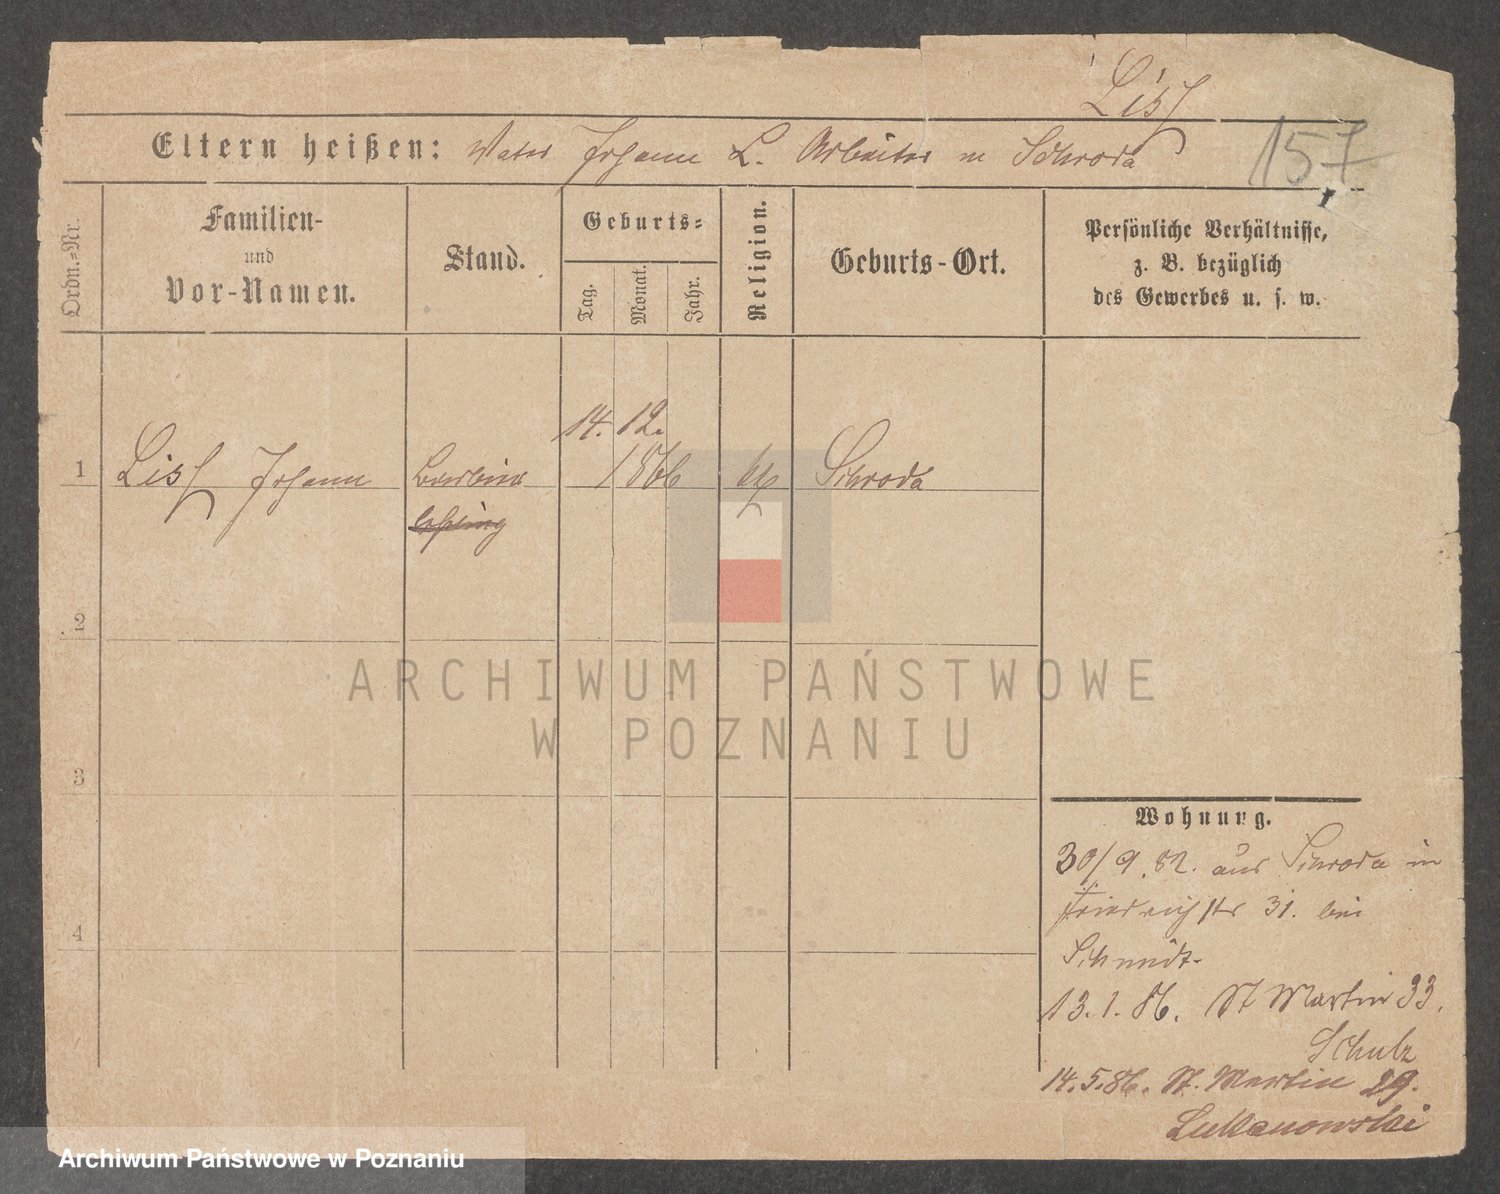 Lisſ
157
Eltern heißen: Vater Johann L. Arbeiter in Schroda
Ordn.=Nr.
Familien-
und
Vor-Namen.
Stand.
Geburts=
Tag.
Monat.
Jahr.
Religion.
Geburts-Ort.
Persönliche Verhältnisse,
z. B. bezüglich
des Gewerbes u. s. w.
14. 12.
1 Lisſ Johann 1866 Schroda
2
3
4
Wohnung.
30/9.82. aus Schroda in
Friedrichstr 31. bei
Schmidt.
13.1.86. St Martin 33.
Schulz
14.5.86. St. Martin 29.
Lukanowski
ARCHIWUM PAŃSTWOWE
W POZNANIU
Archiwum Państwowe w Poznaniu